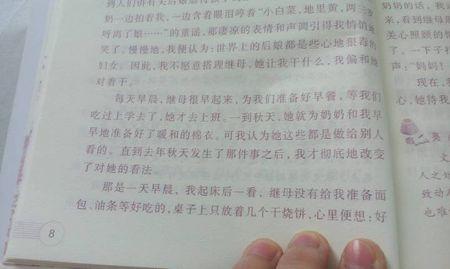 到人们讲有关后娘
奶一边拍着我，一边含着眼泪哼着“小白菜，地里黄，两三
听离了娘……”的童谣，那凄凉的表情和声调引得我悄悄地
哭了。慢慢地，我便认为：世界上的后娘都是些心地狠毒的
妇女。因此，我不愿意搭理继母，她让我干什么，我偏和她
对着干。
每天早晨，继母很早起来，为我们准备好早餐，等我们
吃过上学去了，她才去上班。一到秋天，她就为奶奶和我早
早地准备好了暖和的棉衣。可我认为她这些都是做给别人
看的。直到去年秋天发生了那件事之后，我才彻底地改变
了对她的看法。
那是一天早晨，我起床后一看，继母没有给我准备面
包、油条等好吃的，桌子上只放着几个干烧饼，心里便想：好
8
奶奶的话，我
来，看到继母
关心照顾的情
了。一下子打
声，“妈妈！
现在，
心，她待我
文
人之
致动人
也难